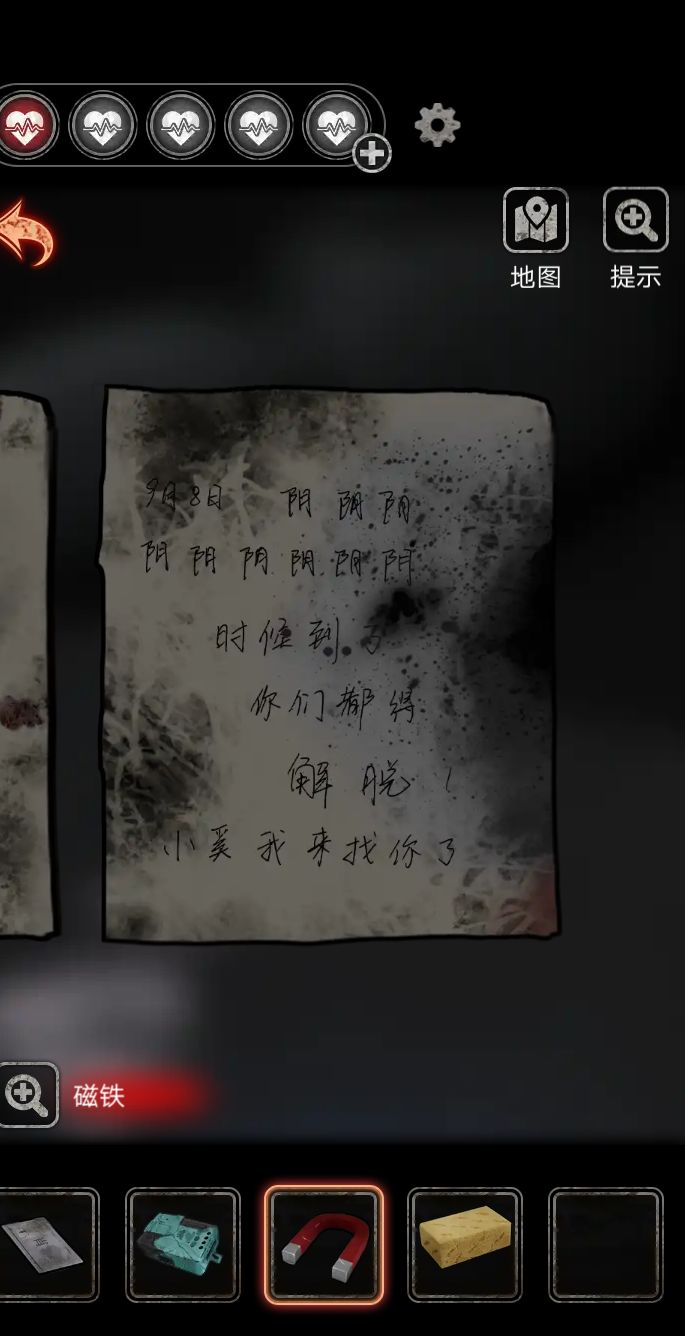 地图
提示
9月8日 阴 阴 阴
阴 阴 阴 阴 阴 阴
时候到了
你们都得
解脱!
小奚我来找你了
磁铁